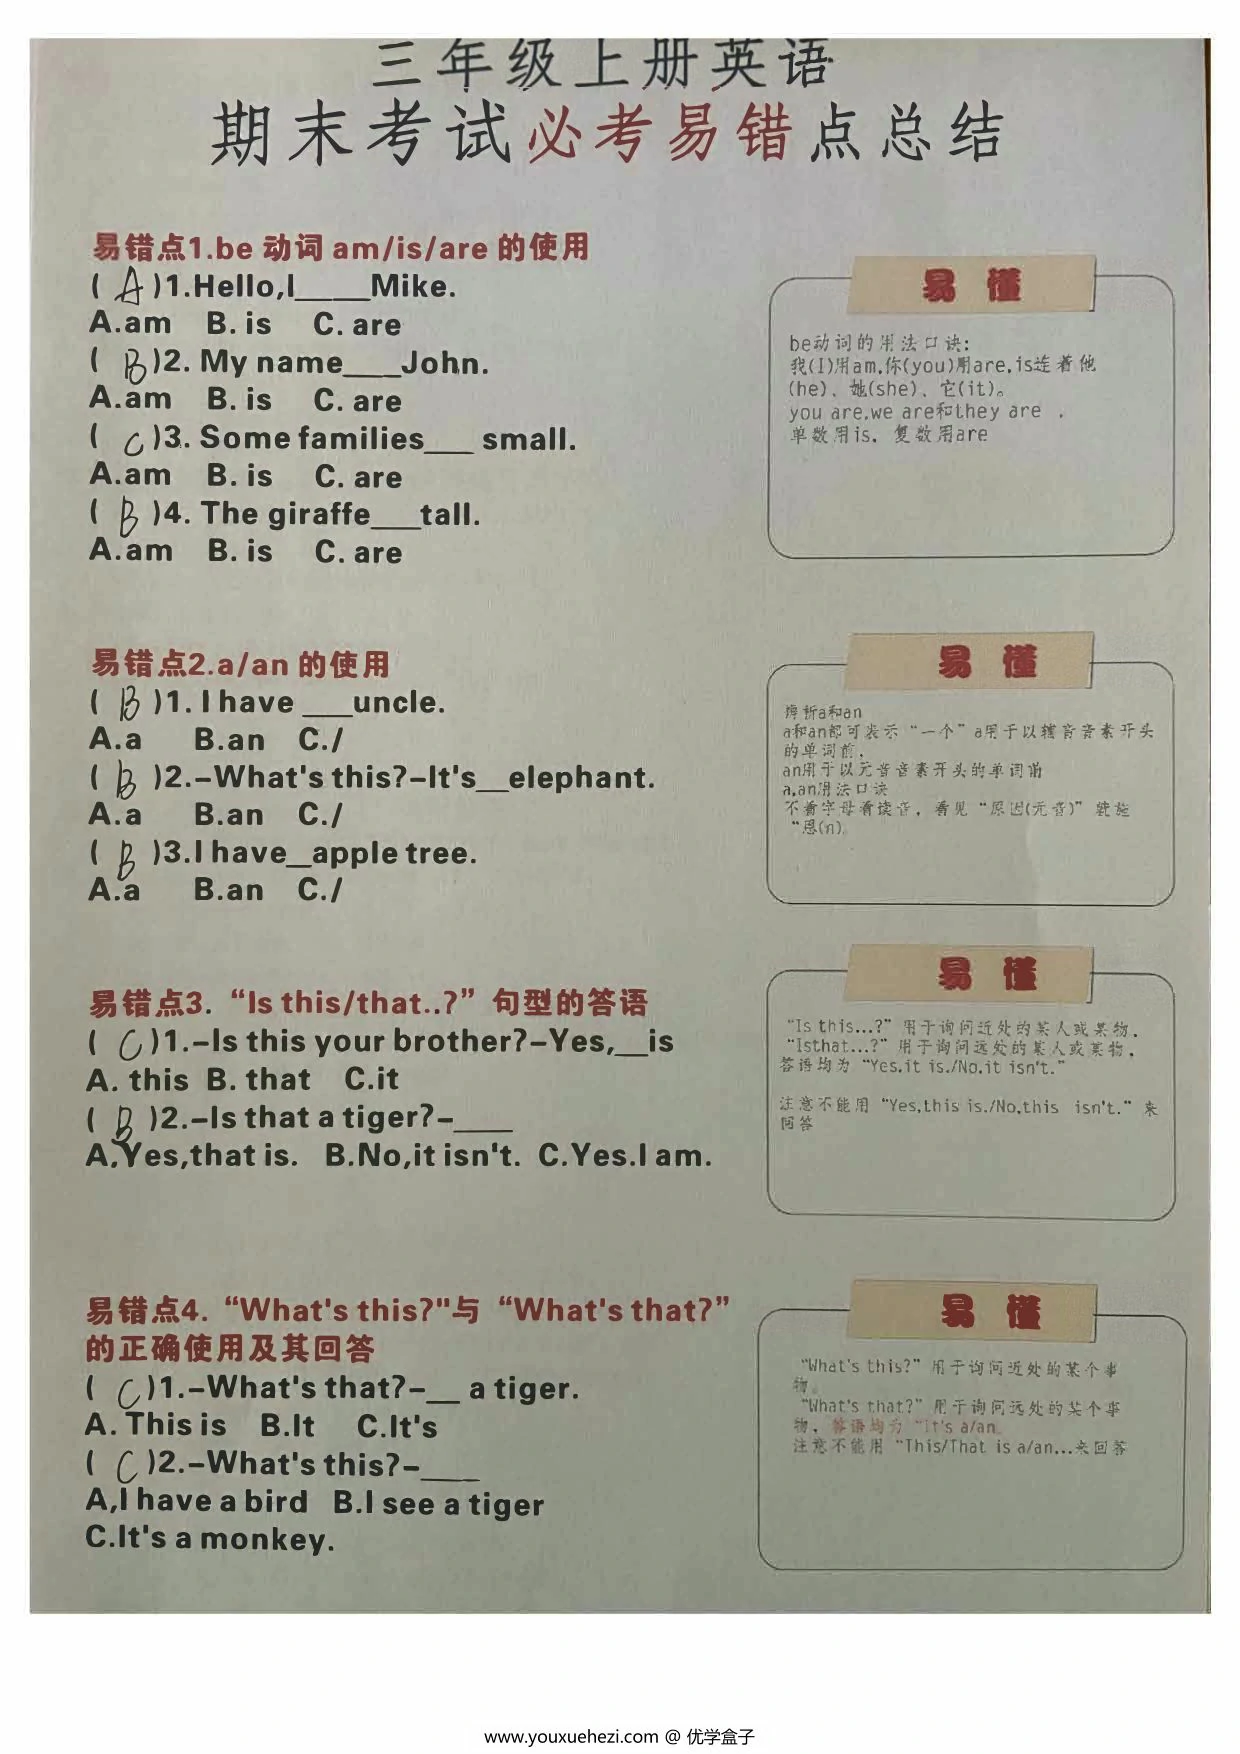 三年级上册英语
期末考试必考易错点总结
易错点1.be 动词 am/is/are 的使用
( A )1.Hello,I____Mike.
A.am B. is C. are
( B )2. My name___John.
A.am B. is C. are
( C )3. Some families___ small.
A.am B. is C. are
( B )4. The giraffe___tall.
A.am B. is C. are
易 懂
be动词的用法口诀:
我(I)用am,你(you)用are,is连着他
(he)、她(she)、它(it)。
you are,we are和they are .
单数用is, 复数用are
易错点2.a/an 的使用
( B )1. I have ___uncle.
A.a B.an C./
( B )2.-What's this?-It's__elephant.
A.a B.an C./
( B )3.I have__apple tree.
A.a B.an C./
易 懂
辨析a和an
a和an都可表示“一个”a用于以辅音音素开头
的单词前,
an用于以元音音素开头的单词前
a,an用法口诀
不看字母看读音, 看见“原因(元音)”就施
“恩(n)
易错点3.“Is this/that..?”句型的答语
( C )1.-Is this your brother?-Yes,__is
A. this B. that C.it
( B )2.-Is that a tiger?-____
A.Yes,that is. B.No,it isn't. C.Yes.I am.
易 懂
“Is this...?”用于询问近处的某人或某物,
“Isthat...?”用于询问远处的某人或某物,
答语均为“Yes,it is./No,it isn't.”
注意不能用“Yes,this is./No,this isn't.”来
回答
易错点4.“What's this?"与“What's that?”
的正确使用及其回答
( C )1.-What's that?-__ a tiger.
A. This is B.It C.It's
( C )2.-What's this?-____
A,I have a bird B.I see a tiger
C.It's a monkey.
易 懂
“What's this?”用于询问近处的某个事
物。
“What's that?”用于询问远处的某个事
物, 答语均为“It's a/an
注意不能用“This/That is a/an...来回答
www.youxuehezi.com @ 优学盒子